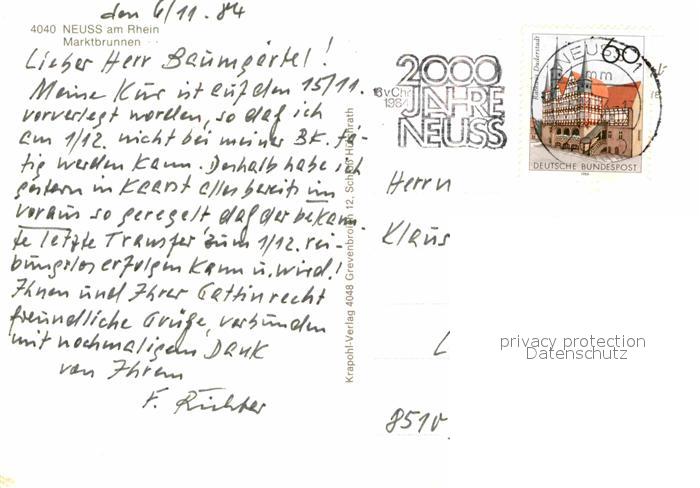 den 6/11.84
4040 NEUSS am Rhein
Marktbrunnen
Lieber Herr Baumgärtel!
Meine Kur ist auf den 15/11.
vorverlegt worden, so daß ich
am 1/12. nicht bei meiner BK. tä-
tig werden kann. Deshalb habe ich
gestern in Kaarst alles bereits im
voraus so geregelt, daß der bekann-
te letzte Transfer zum 1/12. rei-
bungslos erfolgen kann u. wird!
Ihnen und Ihrer Gattin recht
freundliche Grüße, verbunden
mit nochmaligem Dank
von Ihrem
F. Richter
Krapohl-Verlag 4048 Grevenbroich 12, Schloß Hülchrath
2000
JAHRE
NEUSS
16 v. Chr.
1984
NEUSS 1
mm
60
Rathaus Duderstadt
DEUTSCHE BUNDESPOST
Herrn
Klaus
L
8510
privacy protection
Datenschutz